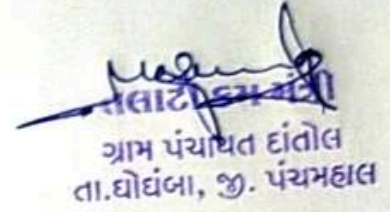 તલાટી કમ મંત્રી
ગ્રામ પંચાયત દાંતોલ
તા.ઘોઘંબા, જી. પંચમહાલ